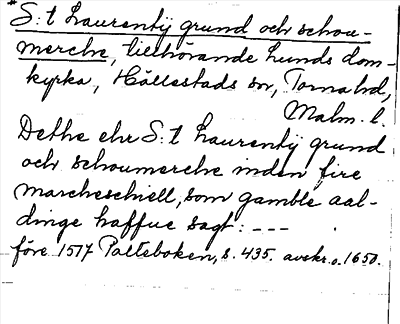 *S:t Laurentÿ grund och schou-
merche, tillhörande Lunds dom-
kyrka, Hällestads sn, Torna hd,
Malm. l.
Dethe ehr S:t Laurentÿ grund
och schoumerche inden fire
marcheschiell, som gamble aal-
dinge haffue sagt: ---
före 1517 Palteboken, s. 435. avskr. o. 1650.